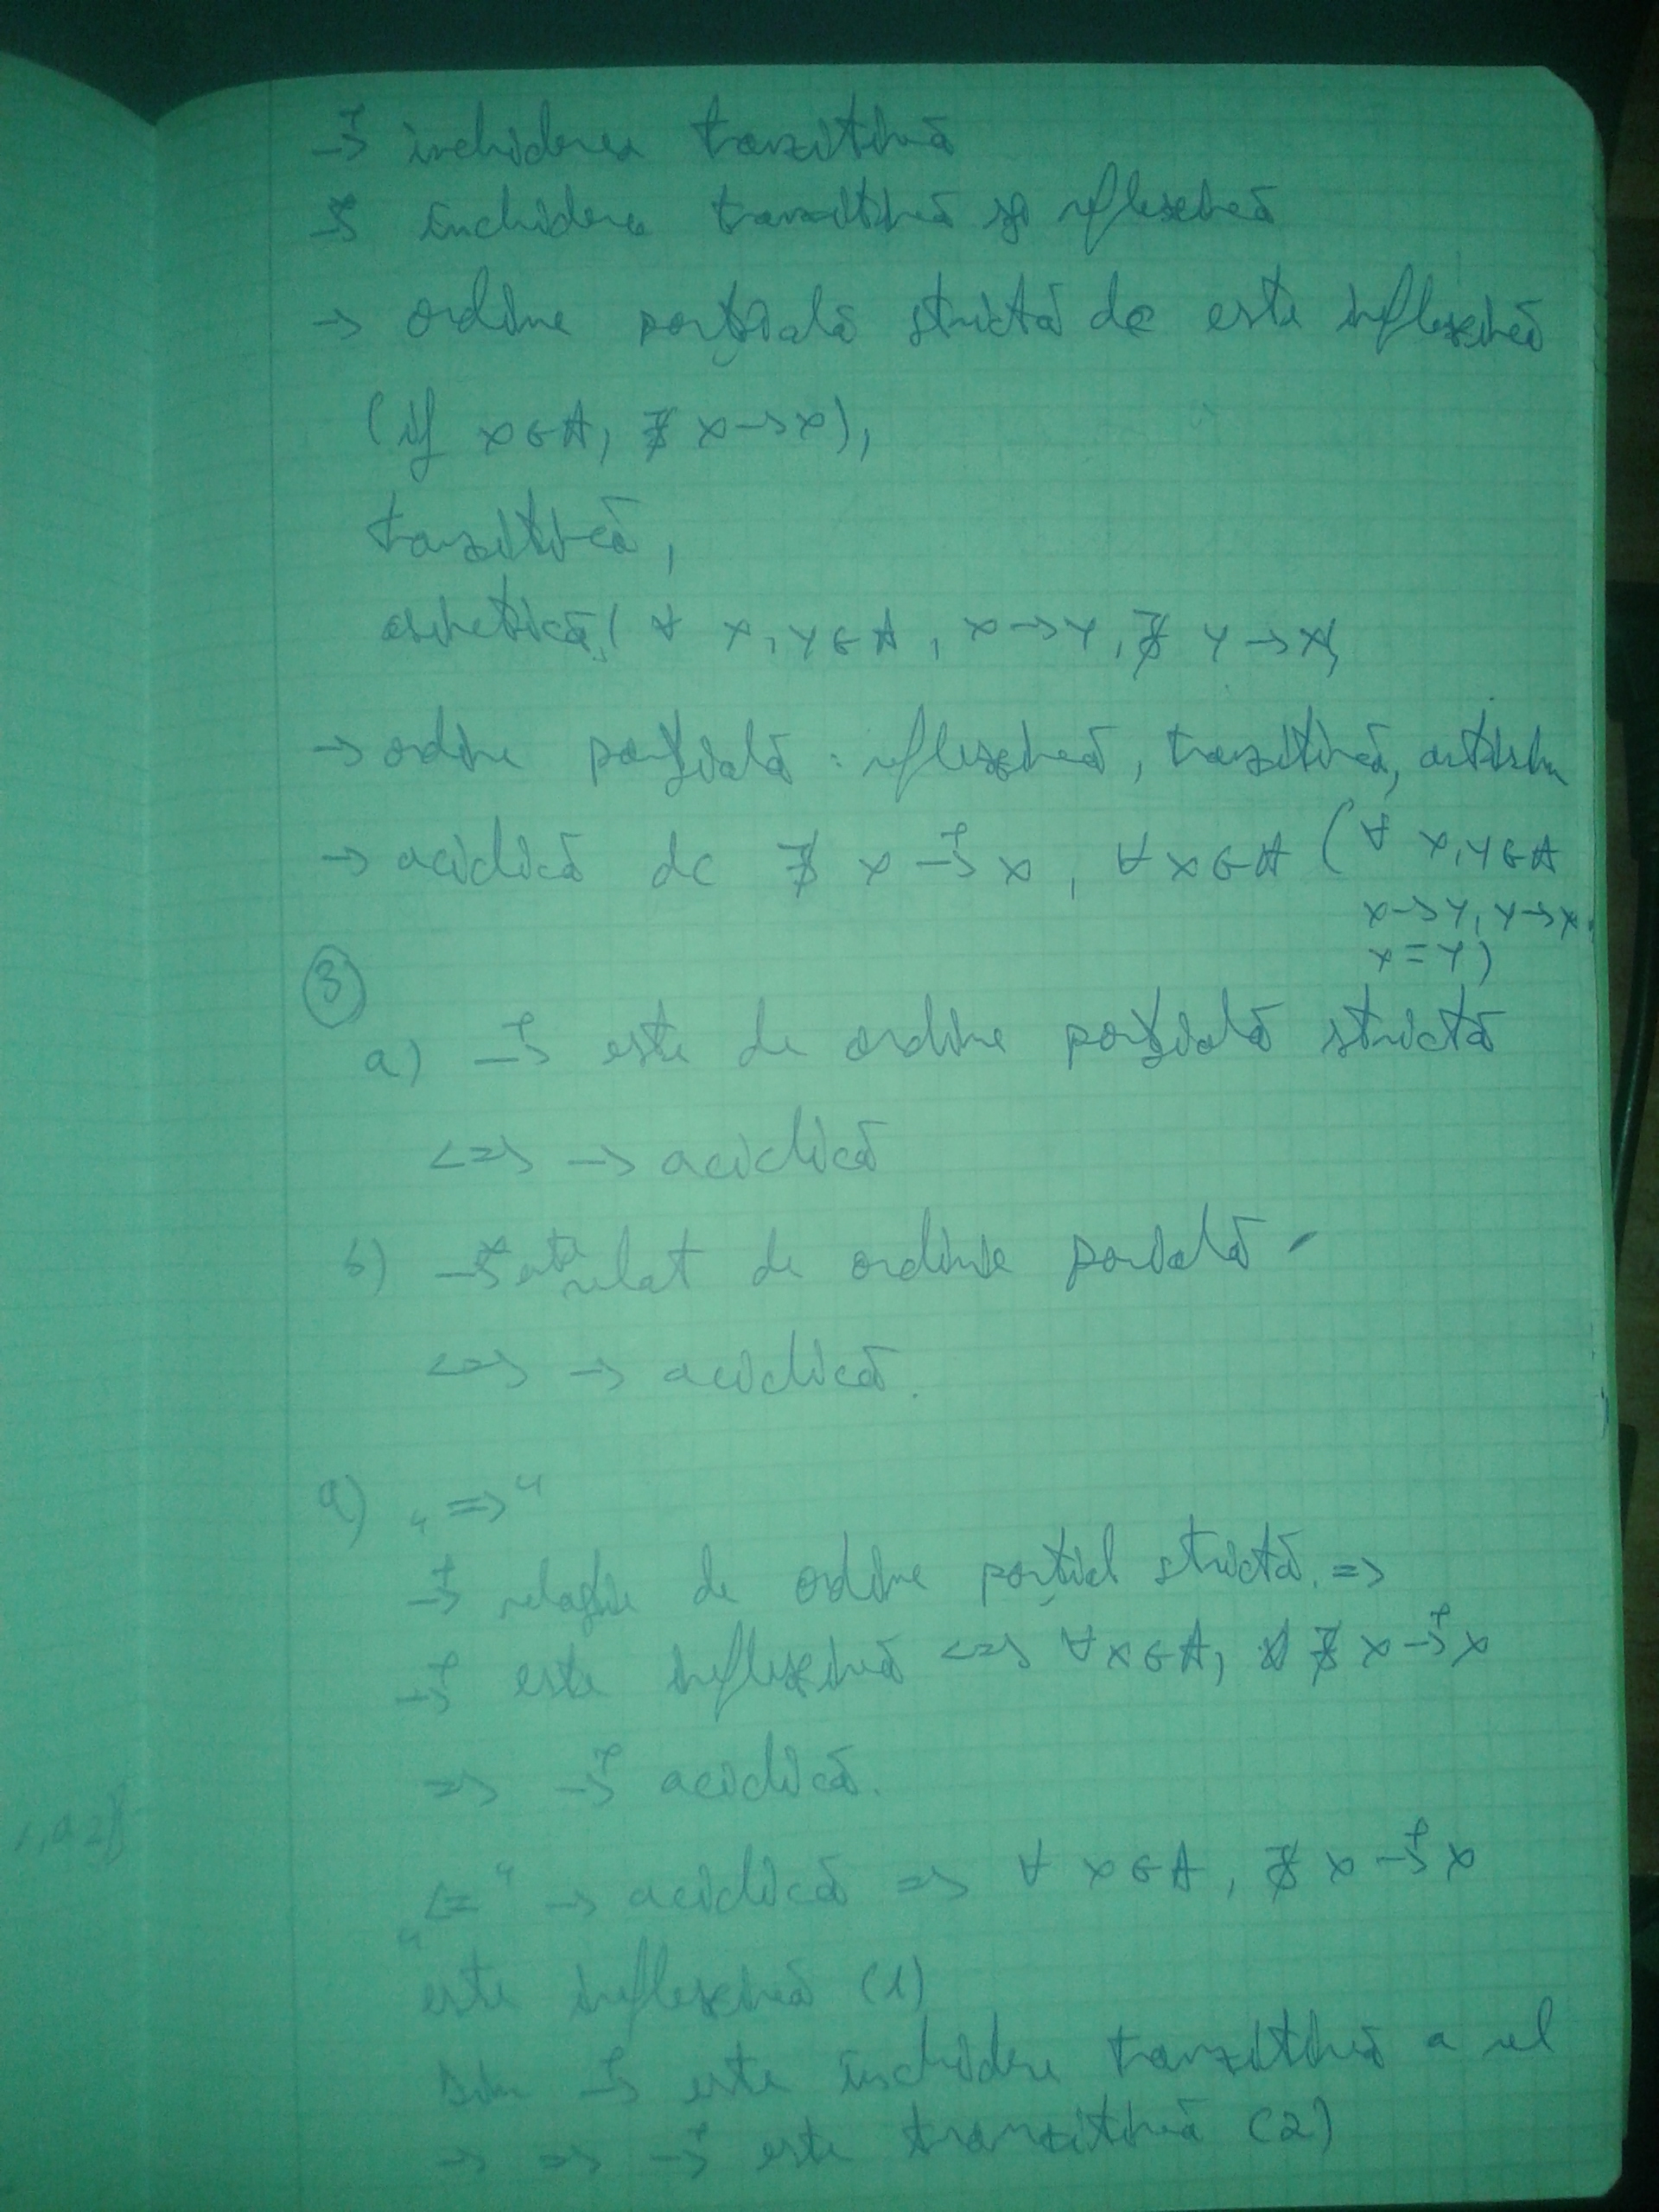 →⁺ închiderea tranzitivă
→* închiderea tranzitivă și reflexivă
→ ordine parțială strictă dc este ireflexivă
(if x∈A, ∄ x→x),
tranzitivă,
asimetrică, (∀ x,y∈A, x→y, ∄ y→x)
→ ordine parțială : reflexivă, tranzitivă, antisim
→ aciclică dc ∄ x →⁺ x, ∀x∈A (∀ x,y∈A
x→y, y→x
x=y)
③
a) →⁺ este de ordine parțială strictă
<=> → aciclică
b) →* este relat de ordine parțială
<=> → aciclică.
a) „=>"
→⁺ relație de ordine parțial strictă. =>
→⁺ este ireflexivă <=> ∀x∈A, ∄ x→⁺x
=> →⁺ aciclică.
„<=" → aciclică => ∀ x∈A, ∄ x→⁺x
este ireflexivă (1)
→⁺ este închidere tranzitivă a rel
→ => →⁺ este tranzitivă (2)